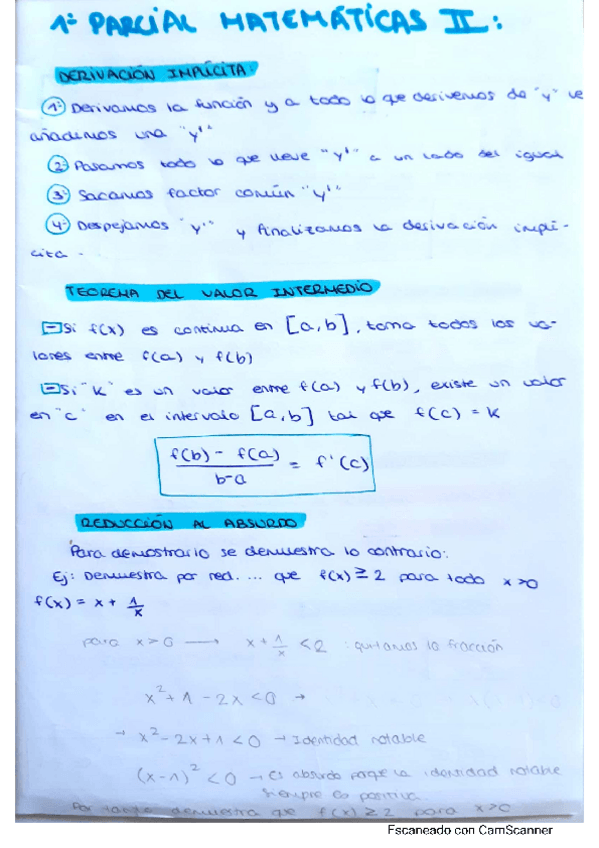 1º PARCIAL MATEMÁTICAS II:
DERIVACIÓN IMPLÍCITA:
1º Derivamos la función y a todo lo que derivemos de "y" le
añadimos una "y'"
2º Pasamos todo lo que lleve "y'" a un lado del igual
3º Sacamos factor común "y'"
4º Despejamos "y'" y Analizamos la derivación implí-
cita.
TEOREMA DEL VALOR INTERMEDIO
- Si f(x) es continua en [a,b], toma todos los va-
lores entre f(a) y f(b)
- Si "K" es un valor entre f(a) y f(b), existe un valor
en "c" en el intervalo [a,b] tal que f(c) = K
f(b) - f(a)
/ b-a = f'(c)
REDUCCIÓN AL ABSURDO
Para demostrarlo se demuestra lo contrario:
Ej: Demuestra por red. ... que f(x) ≥ 2 para todo x>0
f(x) = x + 1/x
para x>0 → x + 1/x < 2 : quitamos la fracción
x² + 1 - 2x < 0 →
→ x² - 2x + 1 < 0 → Identidad notable
(x-1)² < 0 → es absurdo porque la identidad notable
siempre es positiva.
Por tanto demuestra que f(x) ≥ 2 para x>0
Escaneado con CamScanner